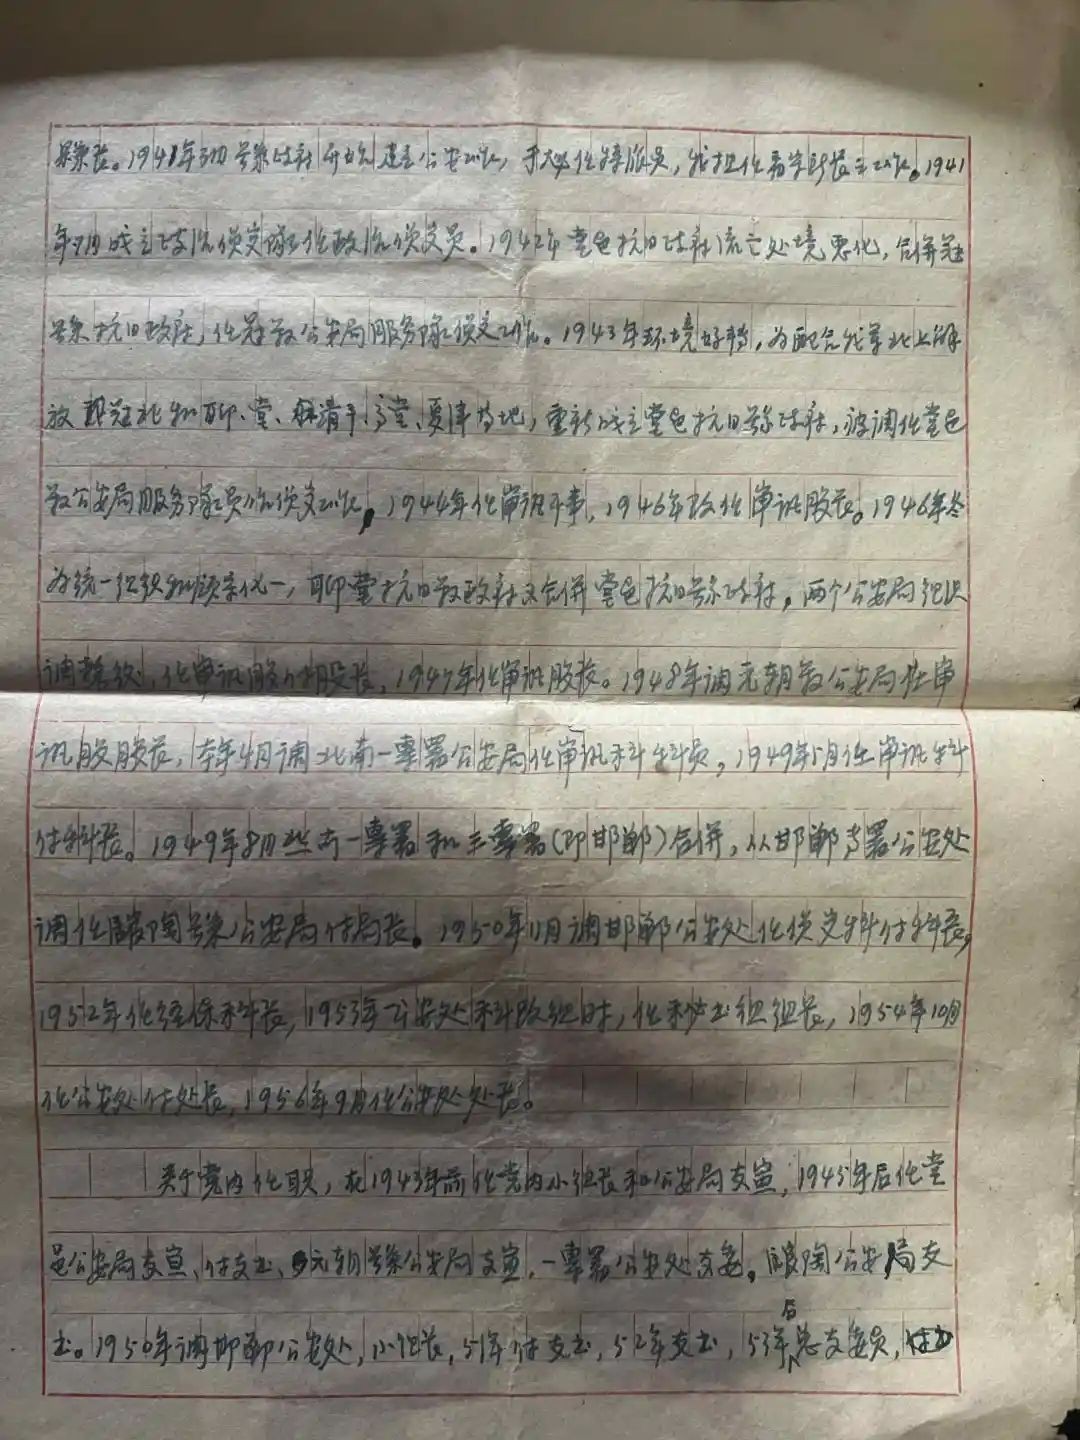 长。1941年3月 县政府开始建立公安工作，于大 任特派员，我担任 所长工作。1941
年9月成立政治侦交队任政治侦交员。1942年堂邑抗日政府流亡处境恶化，合併冠
县抗日政府，任冠县公安局服务队侦交工作。1943年环境好转，为配合我军北上解
放冠北和聊、堂、清平、高堂、夏津等地，重新成立堂邑抗日县政府，被调任堂邑
县公安局服务队员作侦交工作，1944年任审讯干事，1946年改任审讯股长。1946年冬
为统一组织和领导化一，聊堂抗日县政府又合併堂邑抗日县政府，两个公安局组织
调整后，任审讯股付股长，1947年任审讯股长。1948年调元朝县公安局任审
讯股股长，本年4月调 南一專署公安局任审讯科科员，1949年5月任审讯科
付科长。1949年8月 南一專署和三專署(即邯郸)合併，从邯郸专署公安处
调任館陶县公安局付局长。1950年11月调邯郸公安处任侦交科付科长，
1952年任经保科长，1953年公安处科改组时，任秘书组组长，1954年10月
任公安处付处长，1956年9月任公安处处长。
关于党内任职，在1943年前任党内小组长和公安局支宣，1945年后任堂
邑公安局支宣、付支书、元朝县公安局支宣，一專署公安处支委。館陶公安局支
书。1950年调邯郸公安处，小组长，51年付支书，52年支书，53年后总支委员，付书